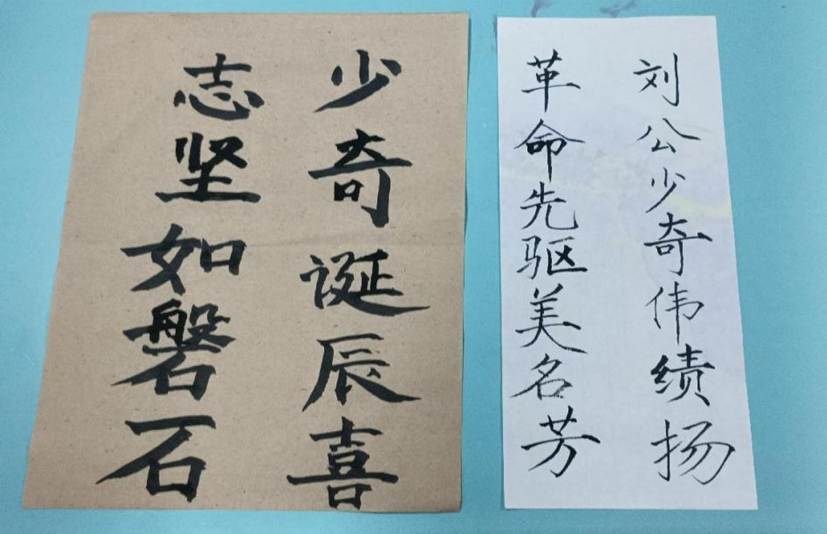 少奇诞辰喜
志坚如磐石
刘公少奇伟绩扬
革命先驱美名芳